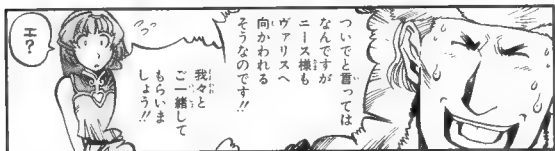 ついでと言っては
なんですが
ニース様も
ヴァリスへ
向かわれる
そうなのです!!
我々と
ご一緒して
もらいま
しょう!!
エ?